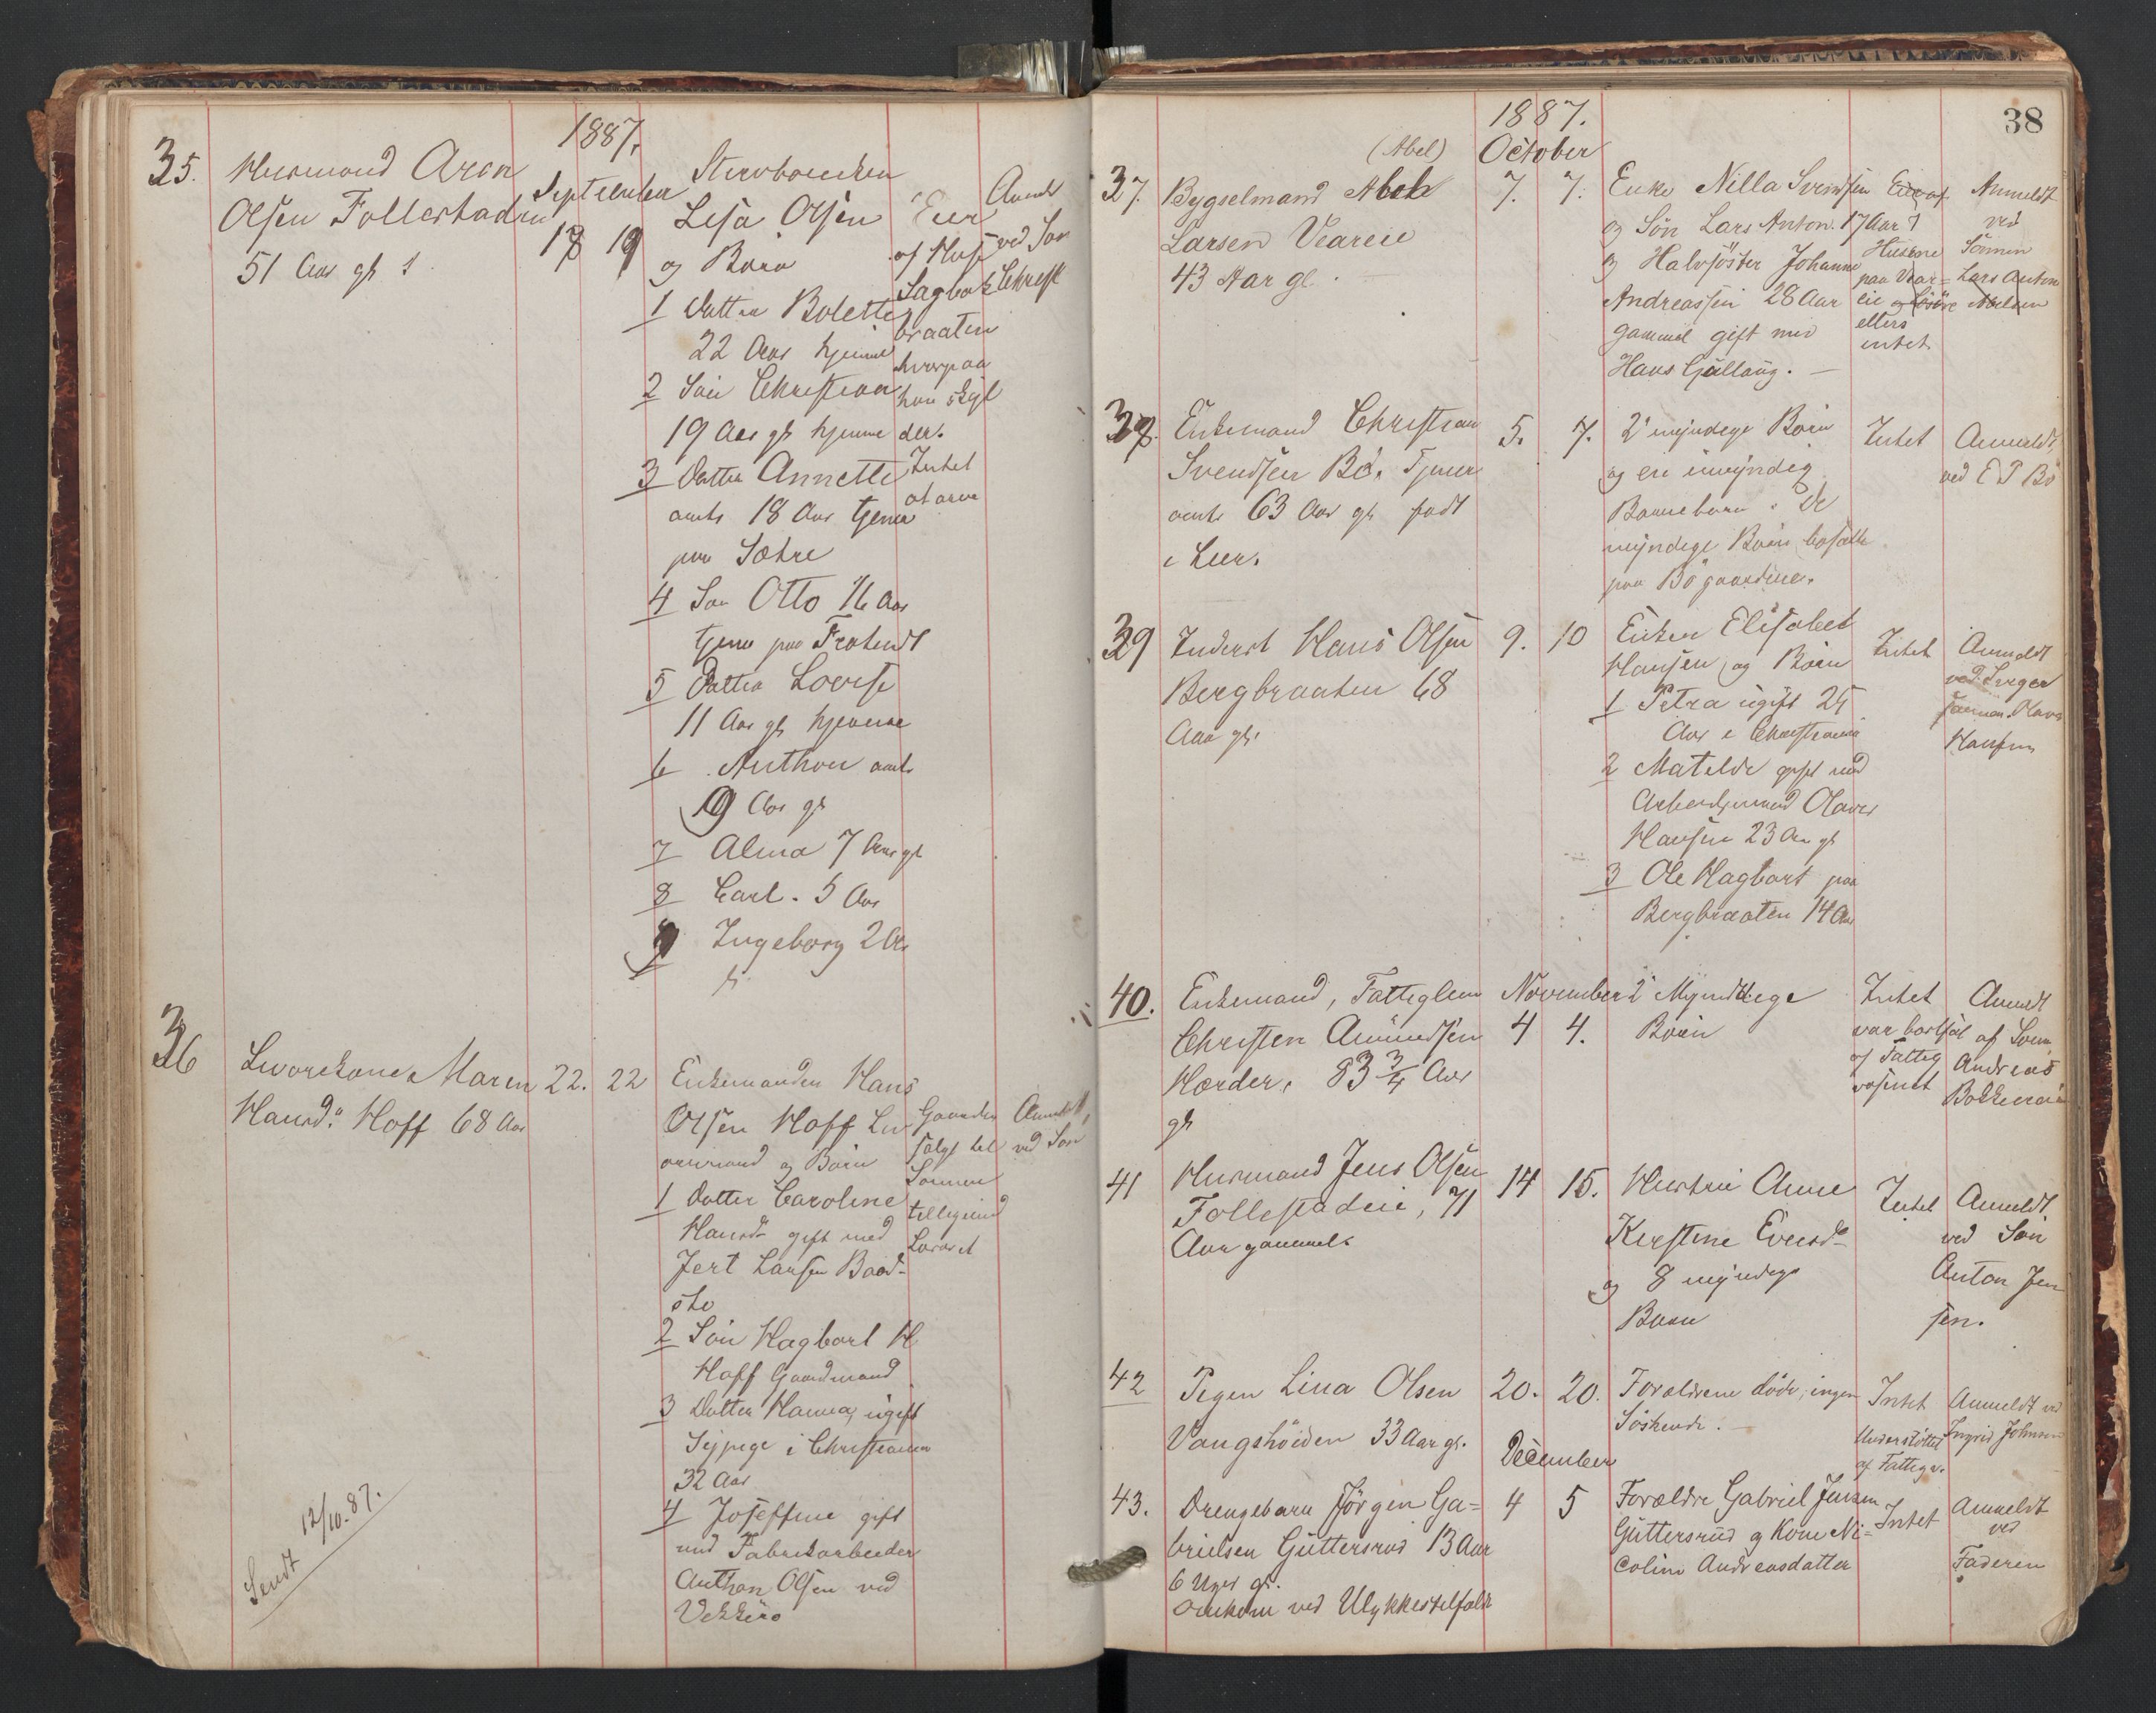 1887.
35. Husmand Aron
Olsen Follestadeie
51 Aar gl
September
18 19
Lisa Olsen
og Børn
1 Datter Bolette
22 Aar hjemme
2 Søn Christian
19 Aar gl hjemme
3 Datter Annette
amt 18 Aar tjener
paa Sætre
4 Søn Otto 16 Aar
tjener paa
5 Datter Lovise
11 Aar gl hjemme
6 Anthon amt
9 Aar gl
7 Alma 7 Aar gl
8 Carl. 5 Aar
9 Ingeborg 2 Aar
Eier
af Huse
braaten
hvorpaa
der.
Intet
at arve
Anmeldt
ved Søn
Christ
36 Maren
Hansd. Hoff 68 Aar
22. 22
Enkemanden Hans
Olsen Hoff
og Børn
1 Datter Caroline
Hansd gift med
Jert Larsen Baad-
stø
2 Søn Hagbart H
Hoff Gaardmand
3 Datter Hanna, ugift
Sypige i Christiania
32 Aar
4 Joseffine gift
med Fabrikarbeider
Anthon Olsen ved
Vækkerø
Gaarden
solgt til
Sønnen
Anmeldt,
ved Søn
Sendt 12/10.87.
38
1887.
October
(Abel)
37. Bygselmand Abel
Larsen Veareie
43 Aar gl.
7. 7.
Enke Nilla Svendsen
og Søn Lars Anton. 17 Aar
og Halvsøster Johanne
Andreassen 28 Aar
gammel gift med
Hans Gjellaug.
Eier af
Husene
paa Vear=
eie og Løsøre
ellers
intet.
Anmeldt
ved
Sønnen
Lars Anton
Abelsen
38. Enkemand Christian
Svendsen Bø. Tjener
amt 63 Aar gl født
i Lier.
5. 7.
2 myndige Børn
og en umyndig
Barnebarn. De
myndige Børn bosatte
paa Bøgaardene.
Intet
Anmeldt,
ved E P Bø
39 Inderst Hans Olsen
Bergbraaten 68
Aar gl.
9. 10
Enken Elisabet
Hansen og Børn
1 Petra ugift 25
Aar i Christiania
2 Matilde gift med
Arbeidsmand Olaves
Hansen 23 Aar gl
3 Ole Hagbart paa
Bergbraaten 14 Aar
Intet
Anmeldt
ved Sviger
sønnen. Olaves
Hansen
40. Enkemand, Fattiglem
Christen Amundsen
Hørder, 83 3/4 Aar
gl
November
4 4.
2 Myndige
Børn
Intet
var bortsat
af Fattig
væsenet
Anmeldt
af Svem
Andreas
41 Husmand Jens Olsen
Follestadeie, 71
Aar gammel.
14 15.
Hustru Anne
Kirstine Eversd
og 8 myndige
Børn
Intet
Anmeldt
ved Søn
Anton Jen
sen.
42 Pigen Lina Olsen
Vangshøiden 33 Aar gl.
20. 20.
Forældrene døde, ingen
Søskende.
Intet
Understøttet
af Fattigv.
Anmeldt ved
Ingrid Johnsen
December
43. Drengebarn Jørgen Ga=
brielsen Guttersrud 13 Aar
6 Uger gl.
omkom ved Ulykkestilfælde
4 5
Forældre Gabriel Jensen
Guttersrud og Kone Ni=
coline Andreasdatter
Intet
Anmeldt
ved
Faderen